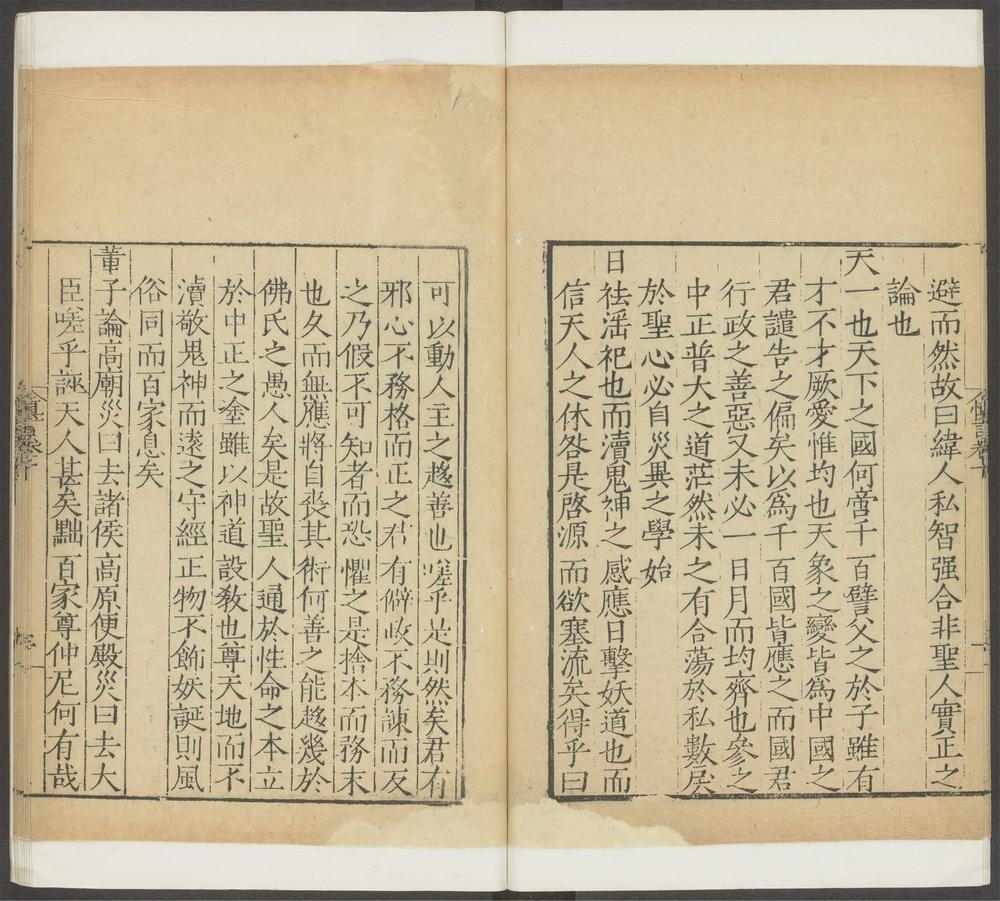 避而然故曰緯人私智强合非聖人實正之
論也
天一也天下之國何啻千百譬父之於子雖有
才不才厥愛惟均也天象之變皆爲中國之
君譴告之偏矣以爲千百國皆應之而國君
行政之善惡又未必一日月而均齊也參之
中正普大之道茫然未之有合蕩於私數戾
於聖心必自災異之學始
日祛淫祀也而瀆鬼神之感應日擊妖道也而
信天人之休咎是啓源而欲塞流矣得乎曰
可以動人主之趨善也嗟乎是則然矣君有
邪心不務格而正之君有僻政不務諫而友
之乃假不可知者而恐懼之是捨本而務末
也久而無應將自喪其術何善之能趨幾於
佛氏之愚人矣是故聖人通於性命之本立
於中正之塗雖以神道設教也尊天地而不
瀆敬鬼神而遠之守經正物不飾妖誕則風
俗同而百家息矣
董子論高廟災曰去諸侯高原便殿災曰去大
臣嗟乎誣天人甚矣黜百家尊仲尼何有哉
慎言卷十